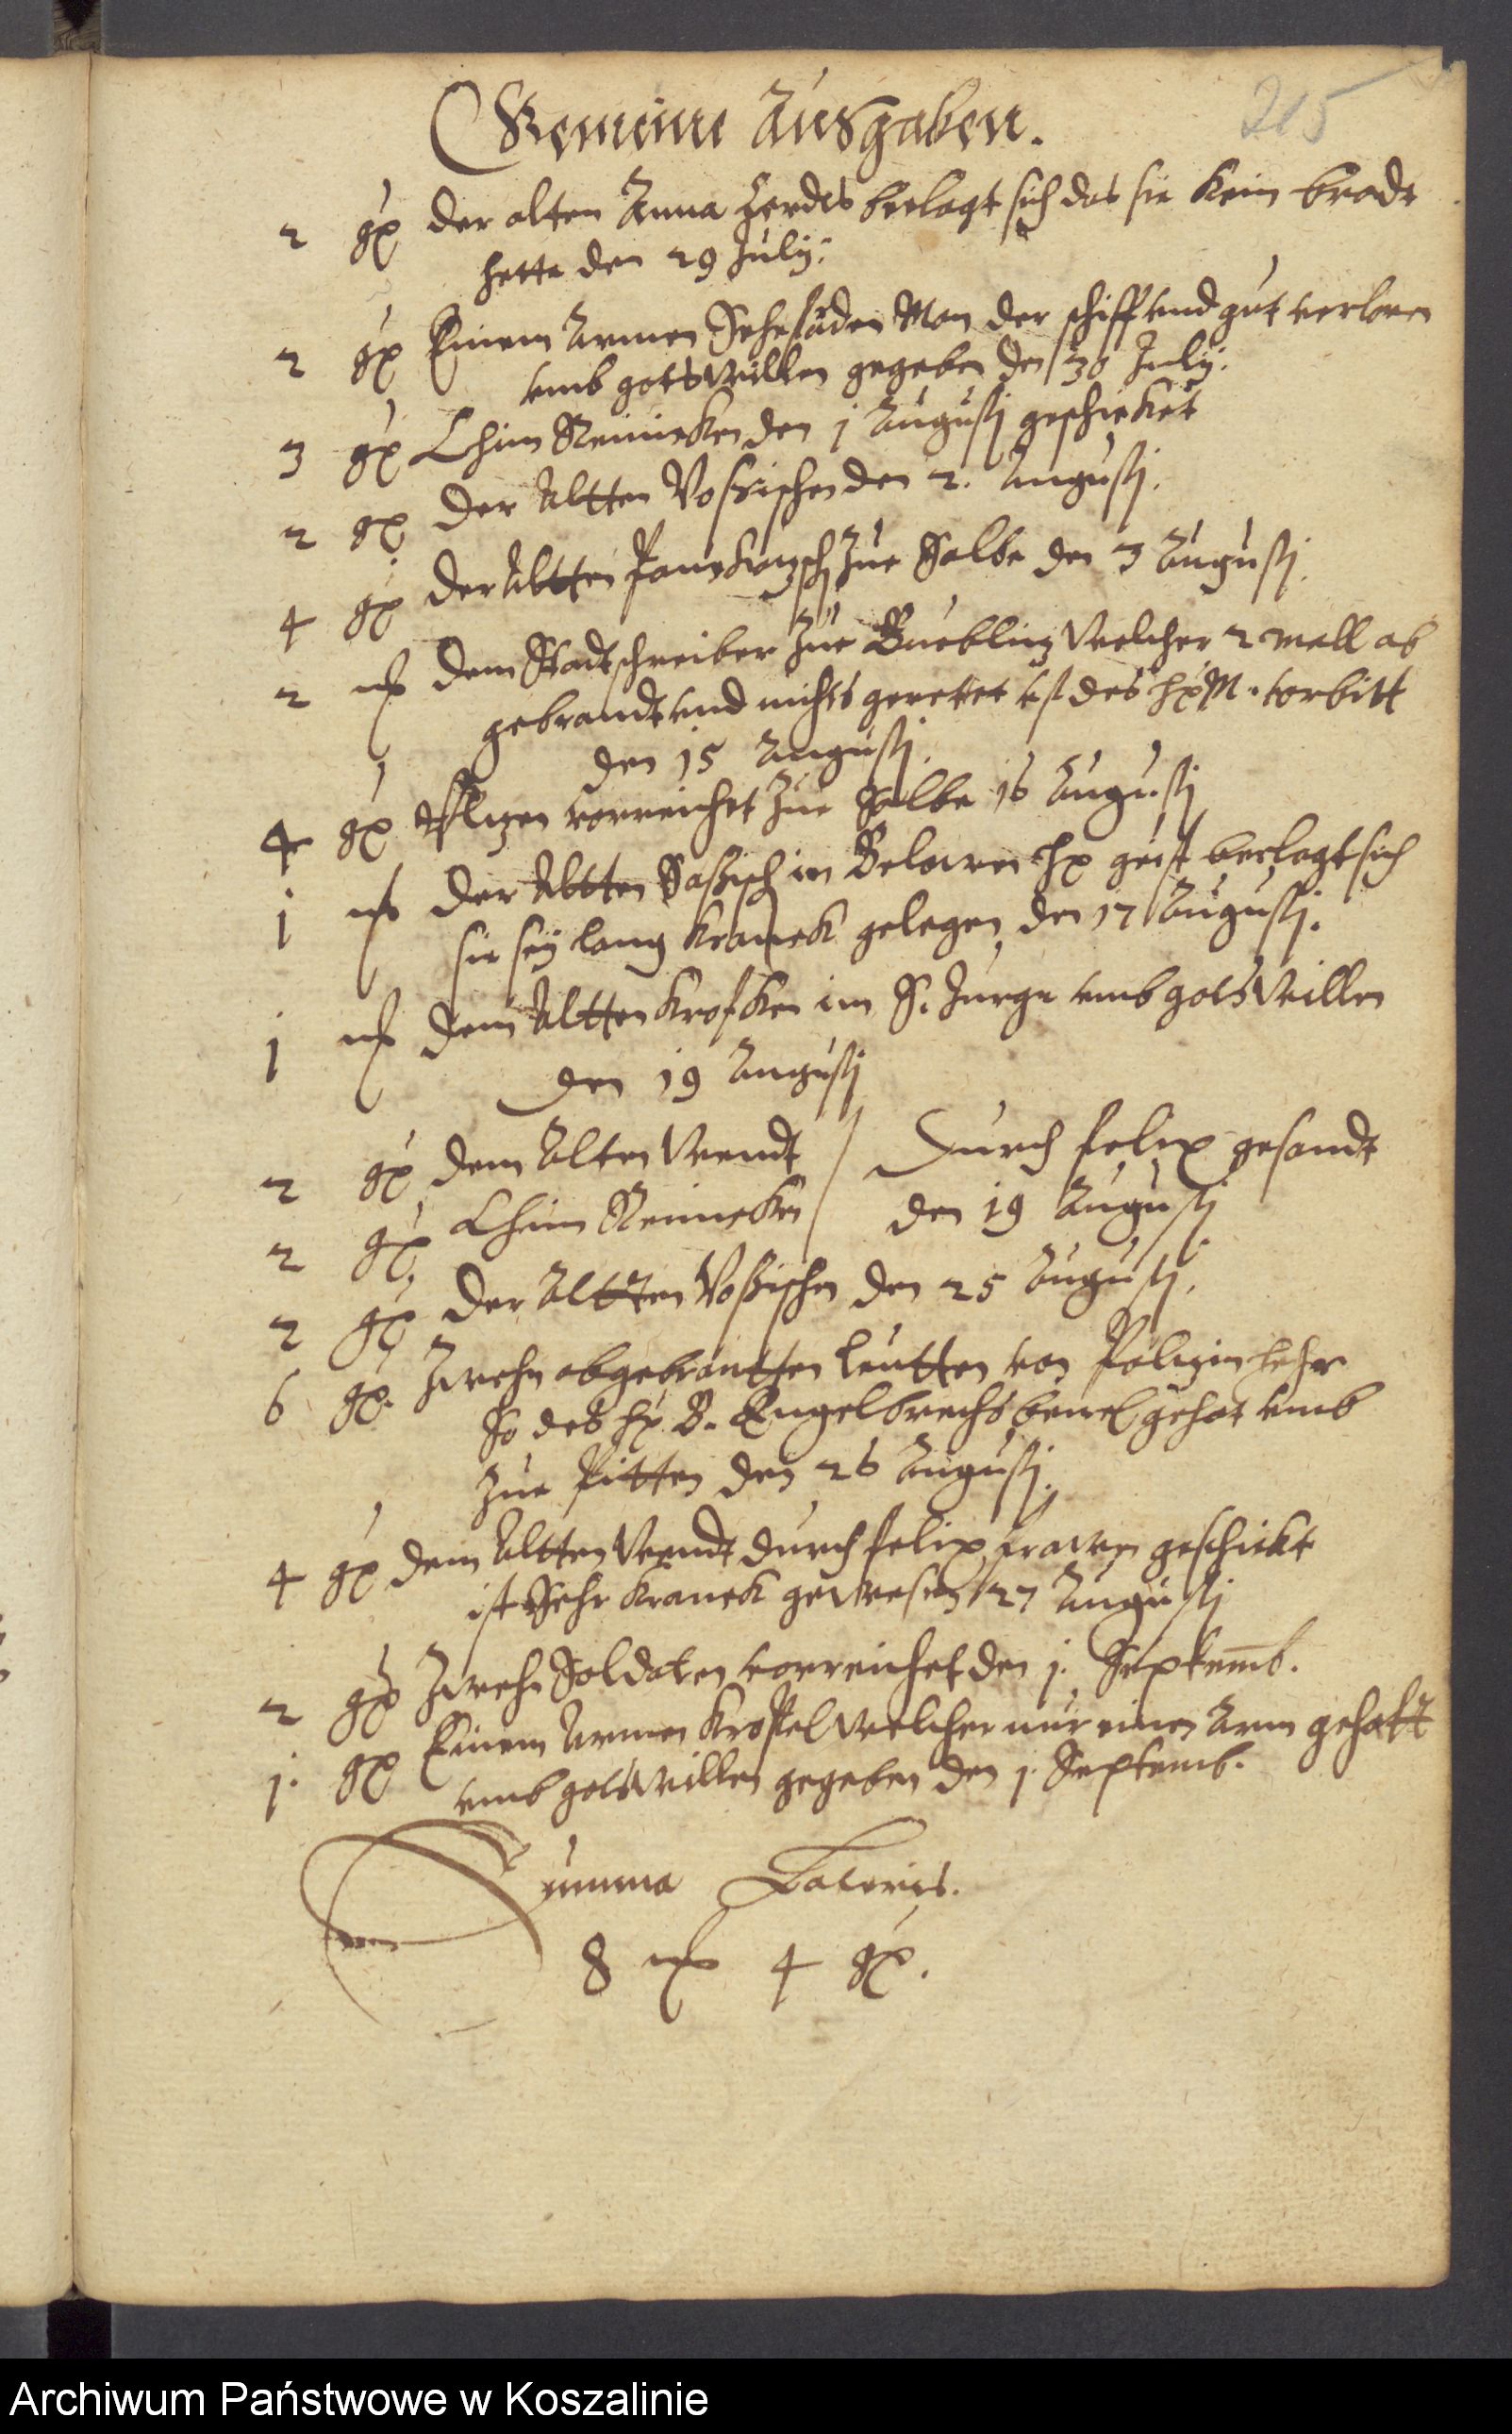 Gemeine Ausgaben.
215
2 gr der alten Anna Gerdes beclagt sich das sie kein brodt
hette den 29 July.
2 gr Einem Armen Man der schiff vnd gut verloren
vmb gots willen gegeben den 30 July.
3 gr Chim Reineken den 1 Augusti geschicket
2 gr der Altten Voßischen den 2. Augusti.
4 gr der Altten zur Salbe den 3 Augusti.
2 mk dem Stadtschreiber zue Bueblitz welcher 2 mall ab
gebrandt vnd nichts gerettet vf des hr M. vorbitt
den 15 Augusti.
4 gr vorreichet zur Salbe 16 Augusti
1 mk der Altten Saßisch im hr geist beclagt sich
sie sey lang kranck gelegen den 17 Augusti.
1 mk dem Altten Krofken im S. Jurge vmb gots willen
den 19 Augusti
2 gr dem Alten Wendt / Durch felix gesandt
2 gr Chim Reineken / den 19 Augusti
2 gr der Altten Voßischen den 25 Augusti.
6 gr. Zwehn abgebrantten Leutten von Politzin
So des hr B. Engelbrechts gehat vmb
zue bitten den 26 Augusti.
4 gr dem Altten Wendt durch felix geschickt
ist Sehr kranck gewesen 27 Augusti
2 gr Zwehn Soldaten vorreichet den 1. Septemb.
1. gr Einem Armen Kröpel welcher nur einen Arm gehatt
vmb gots willen gegeben den 1. Septemb.
Summa Lateris.
8 mk 4 gr.
Archiwum Państwowe w Koszalinie